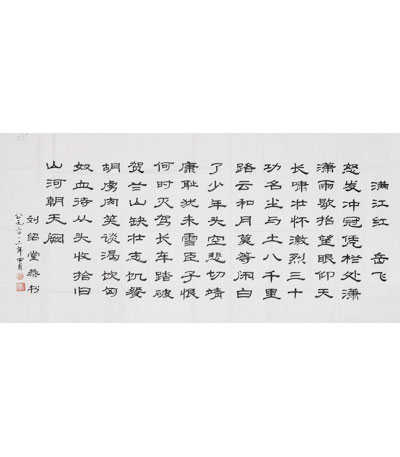 满江红 岳飞
怒发冲冠凭栏处潇
潇雨歇抬望眼仰天
长啸壮怀激烈三十
功名尘与土八千里
路云和月莫等闲白
了少年头空悲切靖
康耻犹未雪臣子恨
何时灭驾长车踏破
贺兰山缺壮志饥餐
胡虏肉笑谈渴饮匈
奴血待从头收拾旧
山河朝天阙
刘绍堂恭书
公元二〇一三年四月